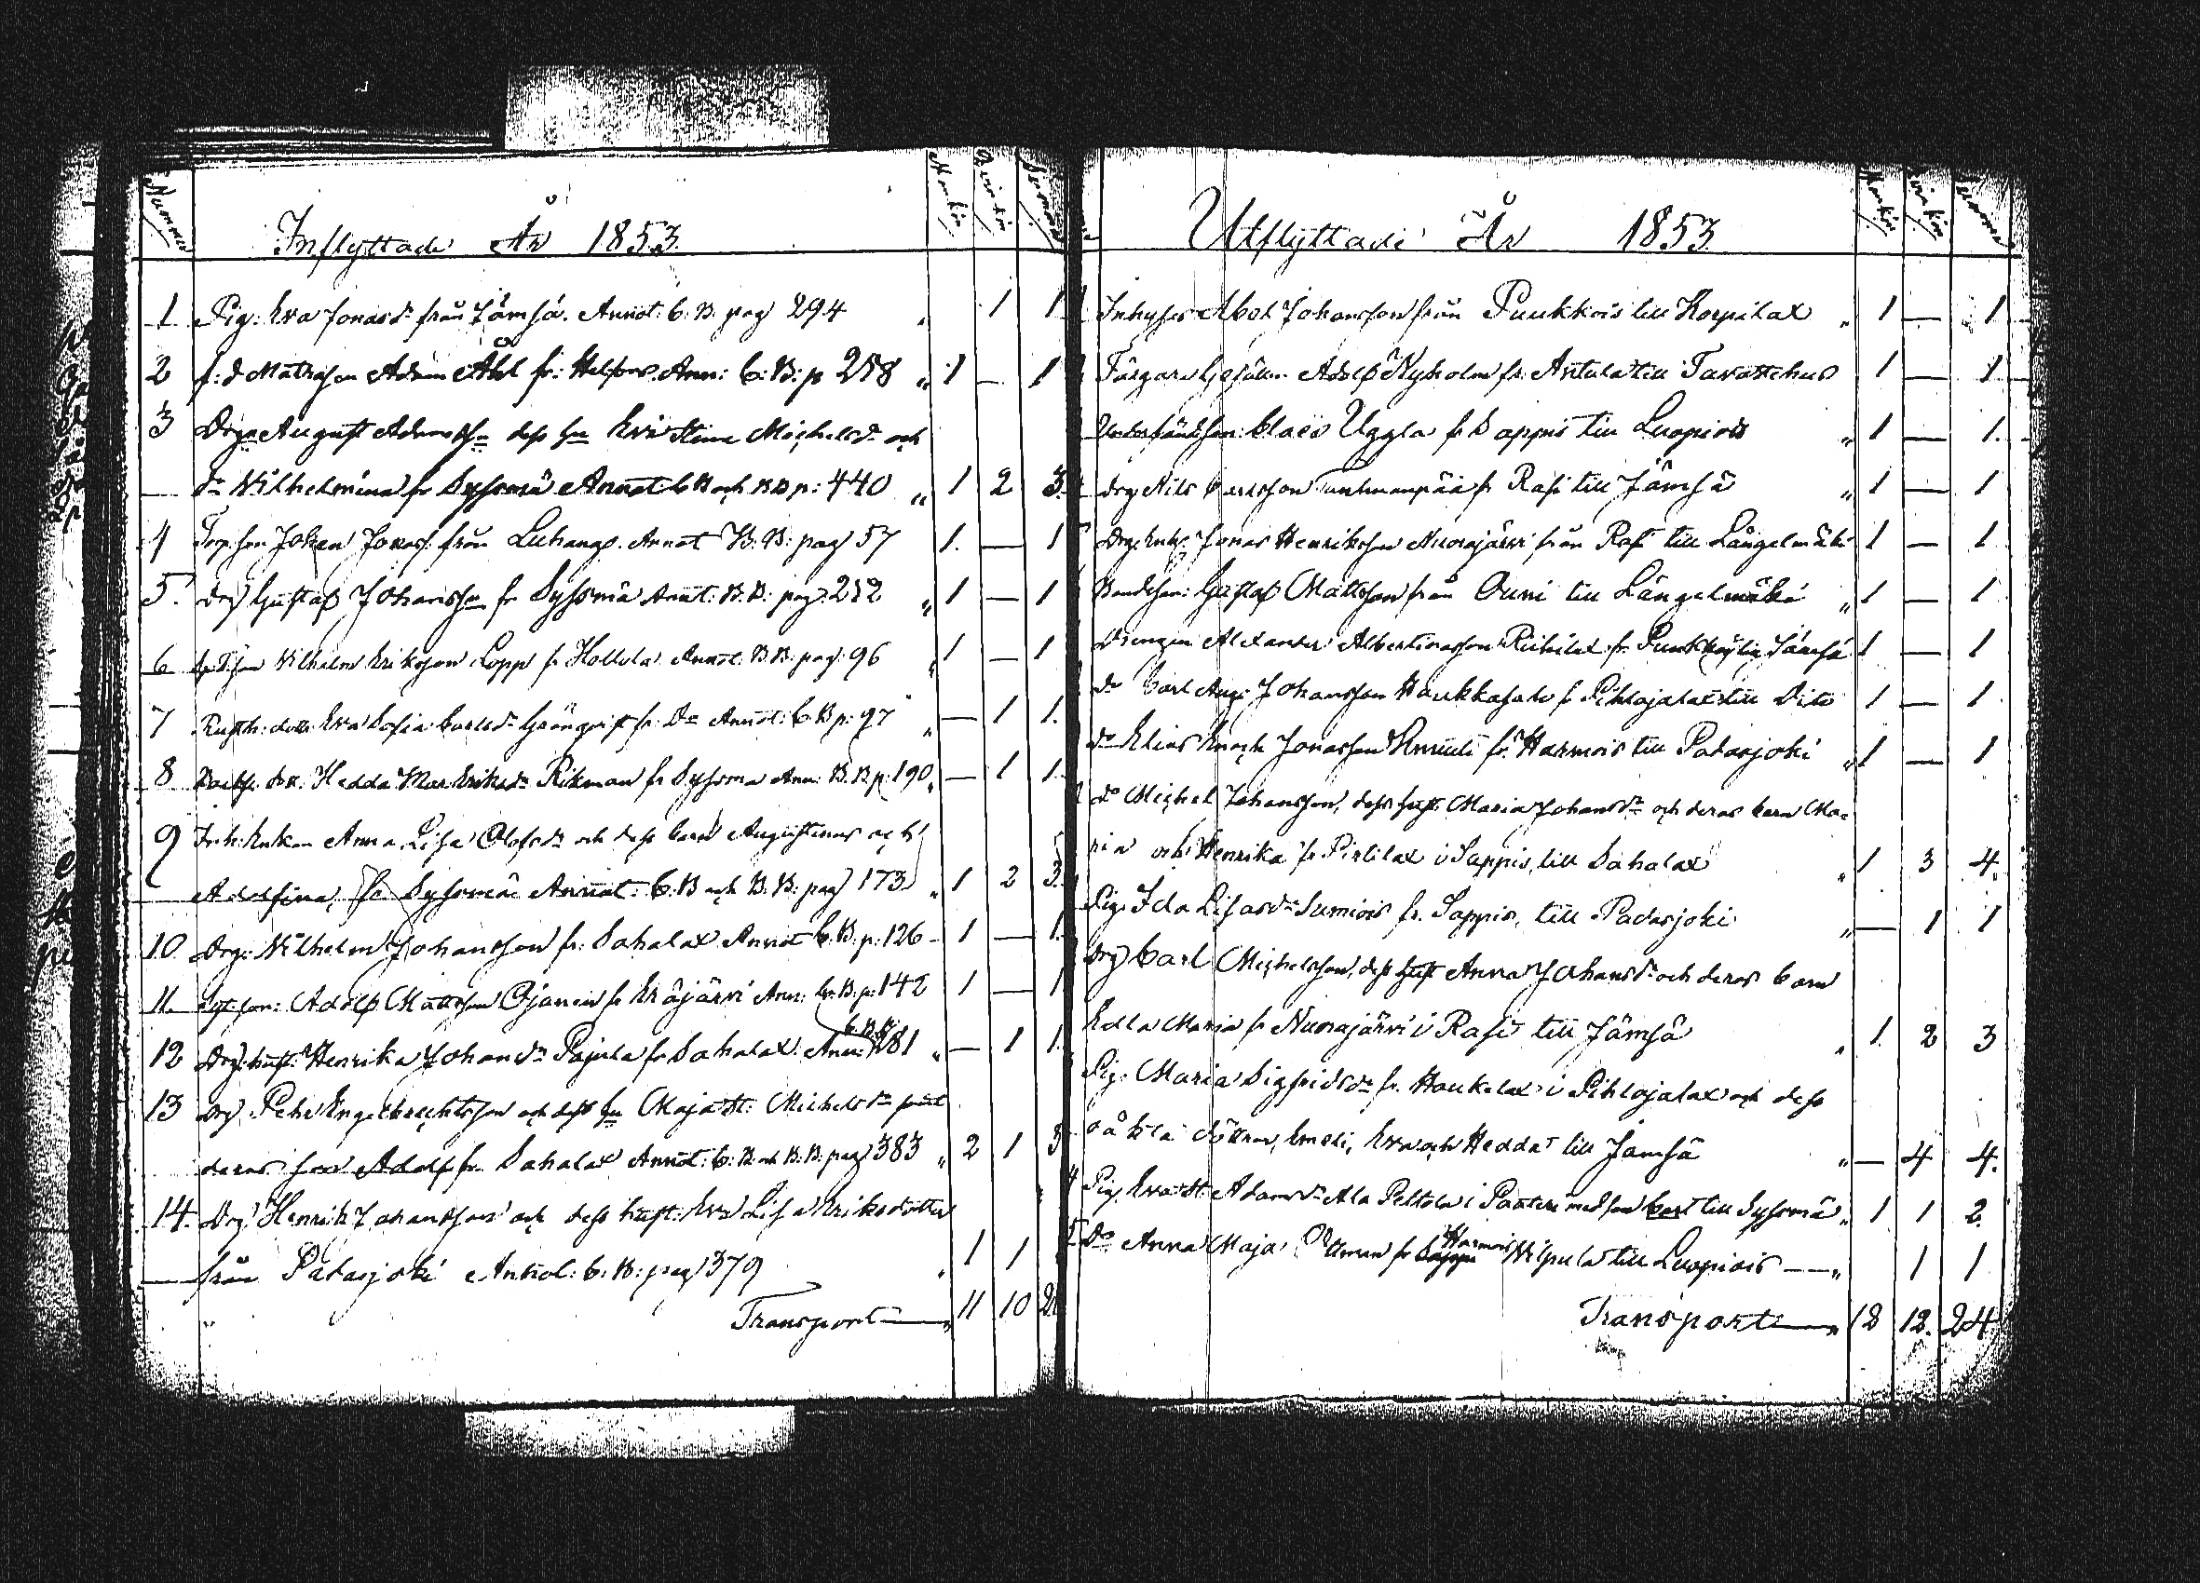 Nummer
Mankön
Qvinkön
Summa
Inflyttade År 1853.
1 Pig: Eva Jonasdr från Jämsä. Annot: C. B. pag 294 " 1 1
2 f: d Matrosen Adam Ahl fr: Helsfors. Ann: C: B: p 258 " 1 — 1
3 Drg August Adamsson dess hu Eva Stina Michelsdr och
dr Wilhelmina fr Syssmä Annot C B och B B p: 440 " 1 2 3
4 Torp. son Johan Jonass. från Luhango. Annot B. B: pag 57 1. — 1
5. Drg Gustaf Johansson fr Syssmä Annot: B. B: pag: 252 " 1 — 1
6 Wilhelm Eriksson Lopp fr Hollola Annot: B. B: pag: 96 " 1 — 1
7 Rusth: dottr Eva Sofia Carlsdr Grönqvist fr: Do Annot: C. B p: 97 " — 1 1.
8 Hedda Mar Eriksdr Rikman fr Syssmä Ann: B. B p: 190 " — 1 1.
9 Inh: Enkan Anna Lisa Olofsdr och dess barn Augustinus och
Adolfina, fr Syssmä Annot: C. B och B. B: pag 173 " 1 2 3.
10 Drg: Wilhelm Johansson fr: Sahalax Annot C. B. p: 126 - 1 — 1.
11. son: Adolf Mattsson Ojanen fr Eräjärvi Ann: C. B. p: 142 1 — 1
12 Drg: hust: Henrika Johansdr Pajula fr Sahalax. Ann: C. B. 281 " — 1 1.
13 Drg Pehr Engelbrechtsson och dess hu Maja St: Michelsdr samt
deras son Adolf fr Sahalax Annot: C: B och B: B: pag 383 " 2 1 3
14. Drg Henrik Johansson och dess hust: Eva Lisa Eriksdotter
från Padasjoki Annot: C. B: pag 379 " 1 1
Transport — " 11 10 21
Mankön
Qvinkön
Summa
Utflyttade År 1853
Inhyses Abel Johansson från Puukkois till Korpilax " 1 — 1
Färgare Gesällen Adolf Nyholm fr Anttila till Tavastehus 1 — 1
Claës Uggla fr Sappis till Luopiois " 1 — 1.
Drg Nils Carlsson fr Rasi till Jämsä " 1 — 1
Drg. Enkl. Jonas Henriksson Nuorajärvi från Rasi till Långelmäki 1 — 1
Bondeson: Gustaf Mattsson från Ouni till Längelmäki " 1 — 1
Drengen Alexander Albertinasson fr Puukkois till Jämsä 1 — 1
do Carl Aug: Johansson Haukkasalo fr Pihlajalax till Dito 1 — 1
do Elias Enoch Jonasson Knuuti fr. Harmois till Padasjoki " 1 — 1
do Michel Johansson, dess hust. Maria Johansdr och deras barn Ma-
ria och Henrika fr Pirtilax i Sappis, till Sahalax " 1 3 4.
Pig. Ida Lisasdr Sumiois fr. Sappis, till Padasjoki " — 1 1
Drg Carl Michelsson, dess hust Anna Johansdr och deras barn
Edla Maria fr Nuorajärvi i Rasi till Jämsä " 1. 2 3
Pig. Maria Sigfridsdr fr. Haukilax i Pihlajalax och dess
oäkta döttrar, Emeli, Eva och Hedda till Jämsä " — 4 4.
4 Pig. Eva St. Adamsdr Ala Peltola i Pänteri med son Carl till Syssmä " 1 1 2.
5 do Anna Maja fr Harmois Wilpula till Luopiois —— " 1 1
Transport — " 12 12. 24